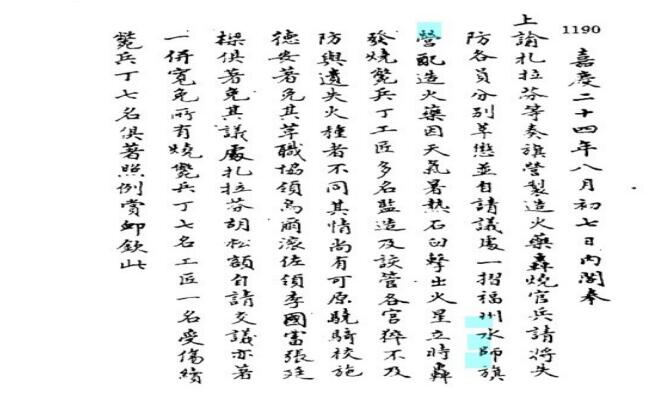 1190
嘉慶二十四年八月初七日內閣奉
上諭扎拉芬等奏旗營製造火藥轟燒官兵請將失
防各員分別革懲並自請議處一摺福州水師旗
營配造火藥因天氣暑熱石臼擊出火星立時轟
發燒斃兵丁工匠多名監造及該管各官猝不及
防與遺失火種者不同其情尚有可原驍騎校施
德安著免其革職協領烏爾滾佐領李國富張廷
樑俱著免其議處扎拉芬胡松額自請交議亦著
一併寬免所有燒斃兵丁七名工匠一名受傷續
斃兵丁七名俱著照例賞卹欽此